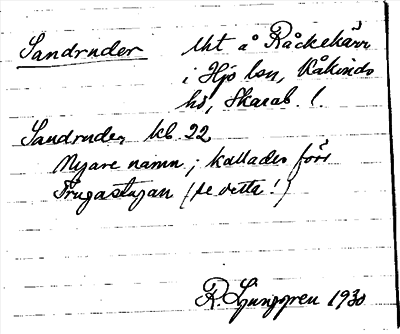 Sandruder Utt å Råckekärr
i Hjo lsn, Kåkinds
hd, Skarab. l.
Sandruder kb. 22
Nyare namn; kallades förr
Frugastugan (se detta!)
R. Ljunggren 1930